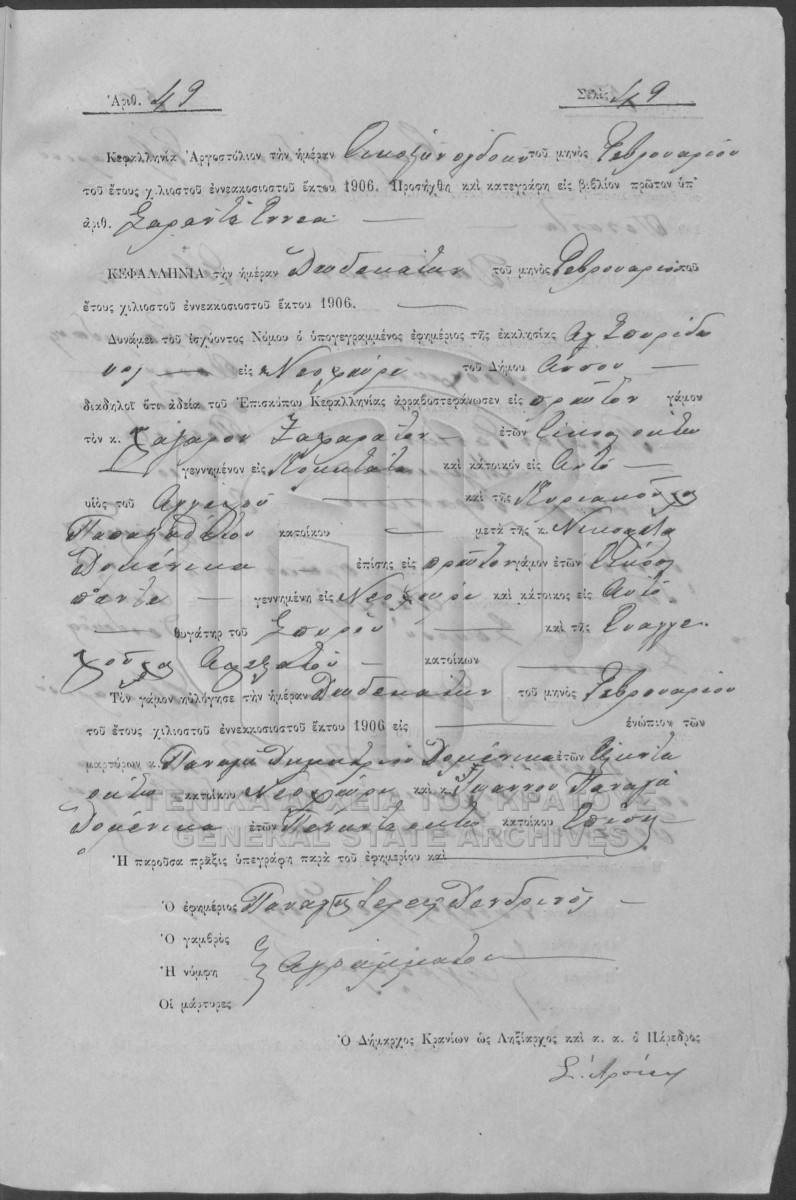 Ἀριθ. 49 Σελὶς 49
Κεφαλληνία Ἀργοστόλιον τὴν ἡμέραν Εἰκοστὴν ὀγδόην τοῦ μηνὸς Φεβρουαρίου
τοῦ ἔτους χιλιοστοῦ ἐννεακοσιοστοῦ ἕκτου 1906. Προσήχθη καὶ κατεγράφη εἰς βιβλίον πρῶτον ὑπ'
ἀριθ. Σαράντα Εννέα —
ΚΕΦΑΛΛΗΝΙΑ τὴν ἡμέραν Δωδεκάτην τοῦ μηνὸς Φεβρουαρίου τοῦ
ἔτους χιλιοστοῦ ἐννεακοσιοστοῦ ἕκτου 1906. —
Δυνάμει τοῦ ἰσχύοντος Νόμου ὁ ὑπογεγραμμένος ἐφημέριος τῆς ἐκκλησίας Αγ Σπυρίδω
νος — εἰς Νεοχώρι τοῦ Δήμου Ασσου —
διαδηλοῖ ὅτι ἀδείᾳ τοῦ Ἐπισκόπου Κεφαλληνίας ἀρραβοστεφάνωσεν εἰς πρῶτον γάμον
τὸν κ. Λάζαρον Ζαφαράτον — ἐτῶν Εἴκοσι οκτώ
— γεννημένον εἰς Κομητάτα καὶ κάτοικον εἰς Αυτό —
υἱὸς τοῦ Αγγελου — καὶ τῆς Κυριακούλας
κατοίκου — μετὰ τῆς κ. Νικολέτα
Δομένικα ἐπίσης εἰς πρῶτον γάμον ἐτῶν Εἴκοσι
πέντε — γεννημένη εἰς Νεοχώρι καὶ κάτοικος εἰς Αυτό
— θυγάτηρ τοῦ Σπύρου — καὶ τῆς Ευαγγε
λούλας Αλεξάτου — κατοίκων —
Τὸν γάμον ηὐλόγησε τὴν ἡμέραν Δωδεκάτην τοῦ μηνὸς Φεβρουαρίου
τοῦ ἔτους χιλιοστοῦ ἐννεακοσιοστοῦ ἕκτου 1906 εἰς — ἐνώπιον τῶν
μαρτύρων κ. Παναγή Δημητρίου Δομένικα ἐτῶν Εξήντα
οκτώ κατοίκου Νεοχώρι καὶ κ. Ιωάννου Παναγή
Δομένικα ἐτῶν Πενήντα οκτώ κατοίκου Επίσης
ΓΕΝΙΚΑ ΑΡΧΕΙΑ ΤΟΥ ΚΡΑΤΟΥΣ
GENERAL STATE ARCHIVES
Ἡ παροῦσα πρᾶξις ὑπεγράφη παρὰ τοῦ ἐφημερίου καὶ —
Ὁ ἐφημέριος Παναγής Δενδρινός —
Ὁ γαμβρὸς
Ἡ νύμφη Αγράμματοι
Οἱ μάρτυρες
Ὁ Δήμαρχος Κρανίων ὡς Ληξίαρχος καὶ κ. κ. ὁ Πάρεδρος